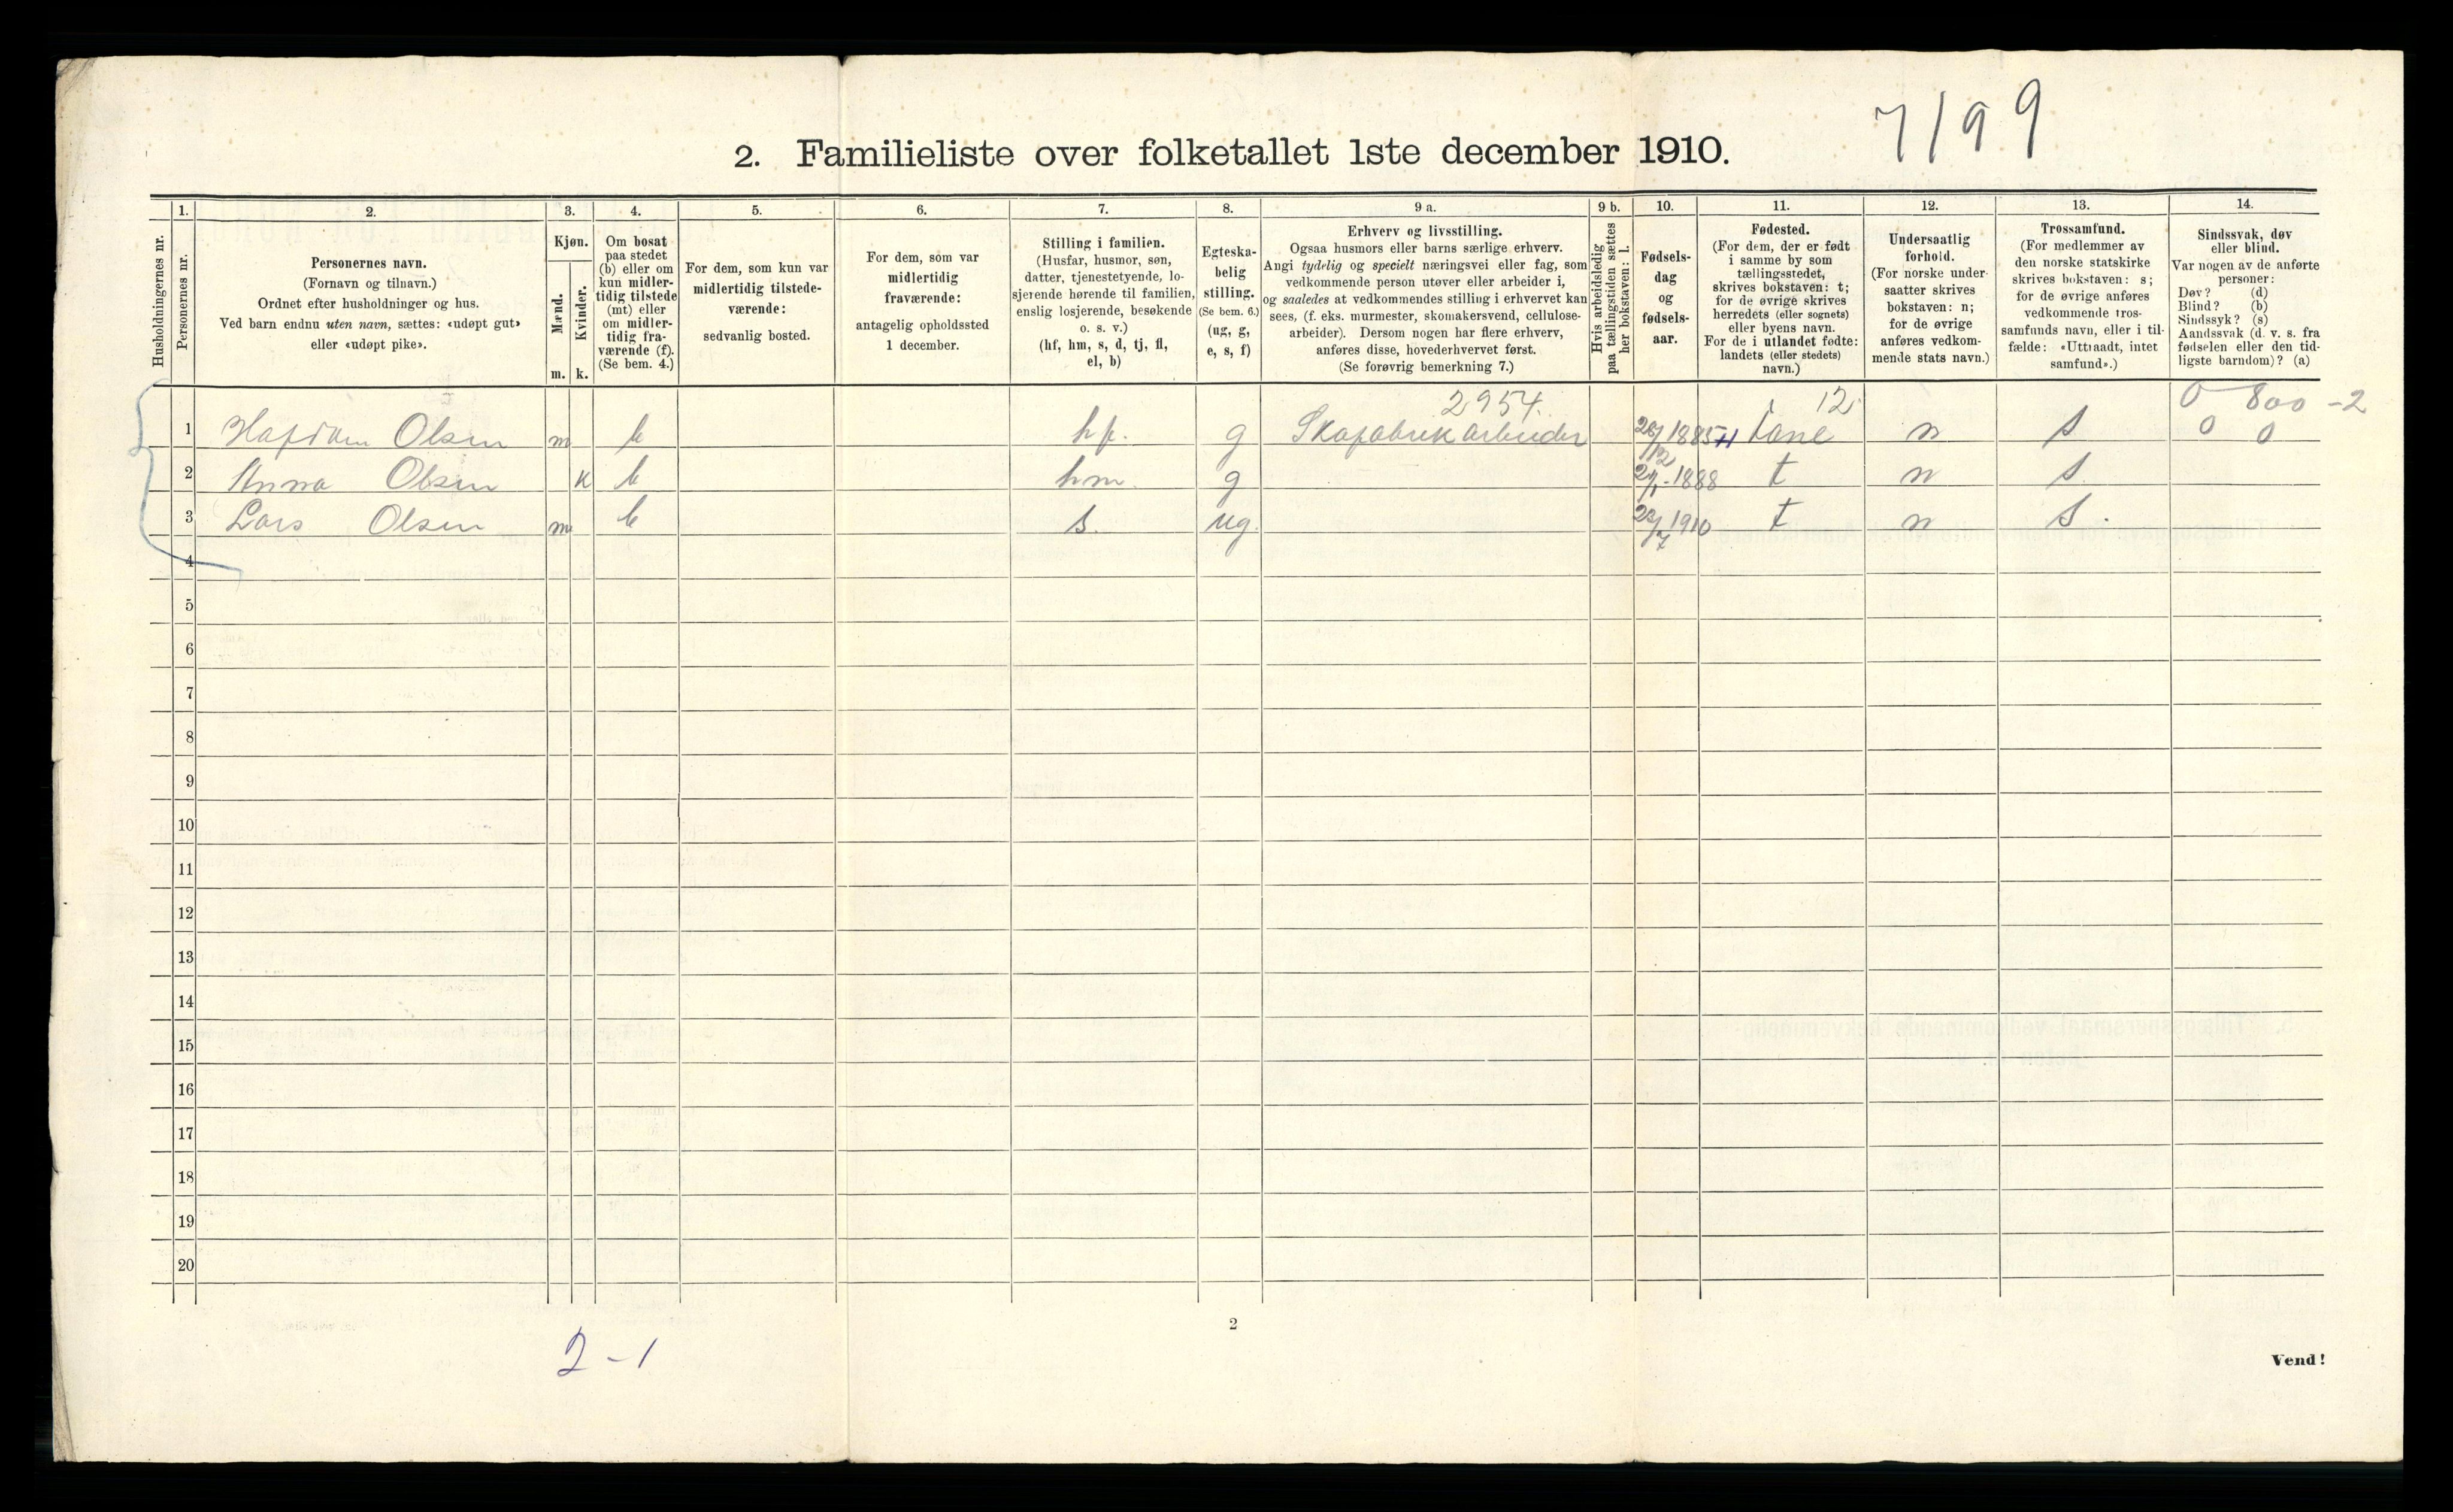 7199
2. Familieliste over folketallet 1ste december 1910.
Husholdningernes nr.
1. Personernes nr.
2. Personernes navn.
(Fornavn og tilnavn.)
Ordnet efter husholdninger og hus.
Ved barn endnu uten navn, sættes: «udøpt gut»
eller «udøpt pike».
3. Kjøn.
Mænd. m.
Kvinder. k.
4. Om bosat
paa stedet
(b) eller om
kun midler-
tidig tilstede
(mt) eller
om midler-
tidig fra-
værende (f).
(Se bem. 4.)
5. For dem, som kun var
midlertidig tilstede-
værende:
sedvanlig bosted.
6. For dem, som var
midlertidig
fraværende:
antagelig opholdssted
1 december.
7. Stilling i familien.
(Husfar, husmor, søn,
datter, tjenestetyende, lo-
sjerende hørende til familien,
enslig losjerende, besøkende
o. s. v.)
(hf, hm, s, d, tj, fl,
el, b)
8. Egteska-
belig
stilling.
(Se bem. 6.)
(ug, g,
e, s, f)
9 a. Erhverv og livsstilling.
Ogsaa husmors eller barns særlige erhverv.
Angi tydelig og specielt næringsvei eller fag, som
vedkommende person utøver eller arbeider i,
og saaledes at vedkommendes stilling i erhvervet kan
sees, (f. eks. murmester, skomakersvend, cellulose-
arbeider). Dersom nogen har flere erhverv,
anføres disse, hovederhvervet først.
(Se forøvrig bemerkning 7.)
9 b. Hvis arbeidsledig
paa tællingstiden sættes
her bokstaven: l.
10. Fødsels-
dag
og
fødsels-
aar.
11. Fødested.
(For dem, der er født
i samme by som
tællingsstedet,
skrives bokstaven: t;
for de øvrige skrives
herredets (eller sognets)
eller byens navn.
For de i utlandet fødte:
landets (eller stedets)
navn.)
12. Undersaatlig
forhold.
(For norske under-
saatter skrives
bokstaven: n;
for de øvrige
anføres vedkom-
mende stats navn.)
13. Trossamfund.
(For medlemmer av
den norske statskirke
skrives bokstaven: s;
for de øvrige anføres
vedkommende tros-
samfunds navn, eller i til-
fælde: «Uttraadt, intet
samfund».)
14. Sindssvak, døv
eller blind.
Var nogen av de anførte
personer:
Døv? (d)
Blind? (b)
Sindssyk? (s)
Aandssvak (d. v. s. fra
fødselen eller den tid-
ligste barndom)? (a)
2954. 12 0 800 -2
1 Olsen m b hf. g Skofabrik arbeider 1885 n s 0 0
2 Anna Olsen k b hm. g 1888 t n s.
3 Lars Olsen m b s. ug. 1910 t n s.
4
5
6
7
8
9
10
11
12
13
14
15
16
17
18
19
20
2
2-1
Vend!